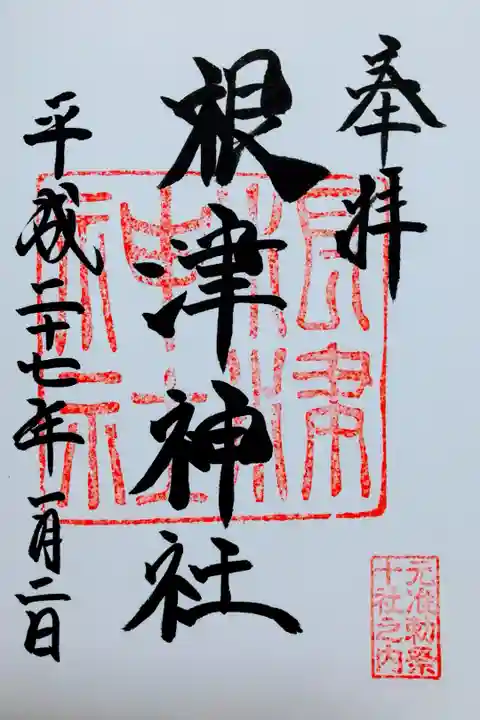 奉拝
根津神社
平成二十七年一月二日
根津神社
元准勅祭
十社之内